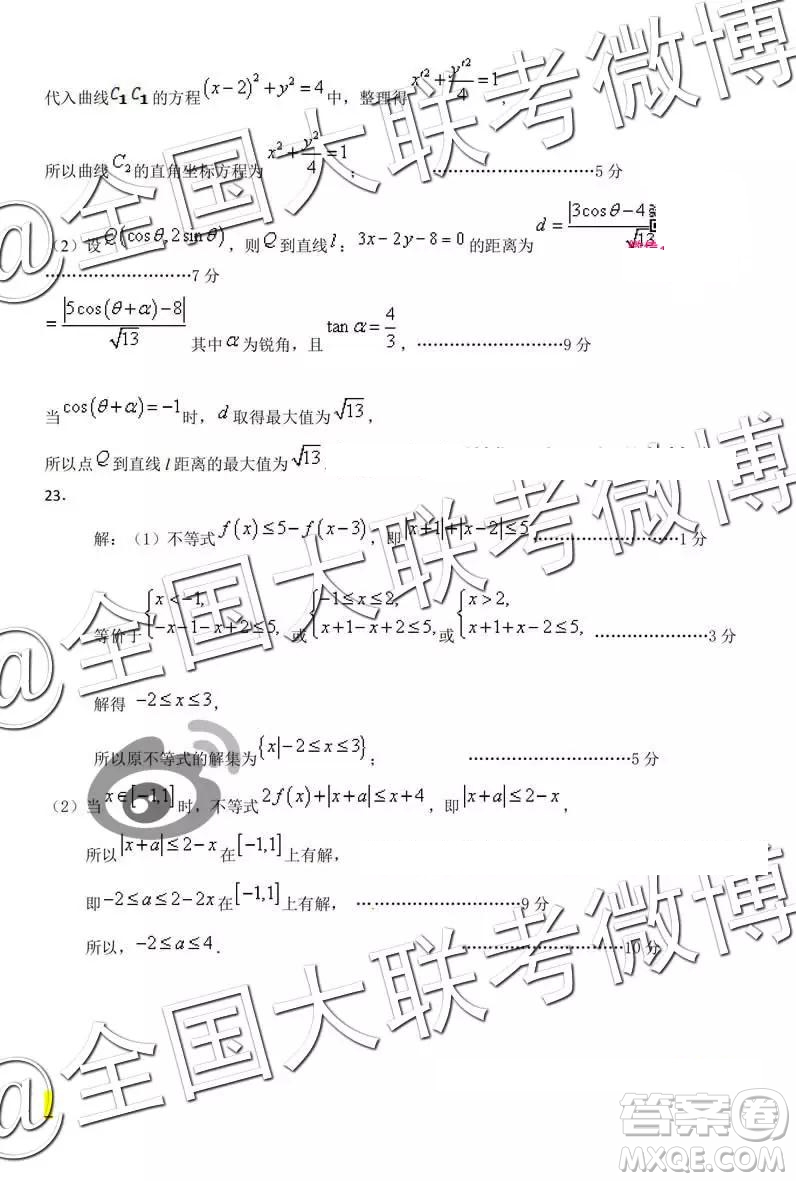 代入曲线C₁ C₁的方程(x-2)²+y²=4中，整理得x'²+y'²/4=1，
所以曲线C₂的直角坐标方程为x²+y²/4=1；…………………………5分
（2）设Q(cosθ,2sinθ)，则Q到直线l：3x-2y-8=0的距离为d=|3cosθ-4
√13
………………………7分
=|5cos(θ+α)-8|/√13 其中α为锐角，且tanα=4/3，………………………9分
当cos(θ+α)=-1时，d取得最大值为√13，
所以点Q到直线l距离的最大值为√13.
23.
解：（1）不等式f(x)≤5-f(x-3)，即|x+1|+|x-2|≤5，………………………1分
等价于{x<-1, -x-1-x+2≤5, 或{-1≤x≤2, x+1-x+2≤5, 或{x>2, x+1+x-2≤5, …………………3分
解得 -2≤x≤3，
所以原不等式的解集为{x|-2≤x≤3}；…………………………5分
（2）当x∈[-1,1]时，不等式2f(x)+|x+a|≤x+4，即|x+a|≤2-x，
所以|x+a|≤2-x在[-1,1]上有解，
即-2≤a≤2-2x在[-1,1]上有解，…………………………9分
所以，-2≤a≤4．…………………………10分
@全国大联考微博
@全国大联考微博
@全国大联考微博
答案卷
MXQE.COM